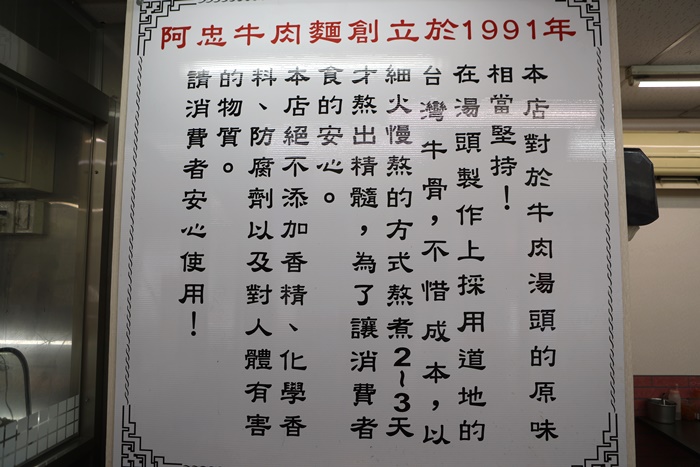 阿忠牛肉麵創立於1991年
本店對於牛肉湯頭的原味
相當堅持！
在湯頭製作上採用道地的
台灣牛骨，不惜成本，以
細火慢熬的方式熬煮2~3天
才熬出精髓，為了讓消費者
食的安心。
本店絕不添加香精、化學香
料、防腐劑以及對人體有害
的物質。
請消費者安心使用！